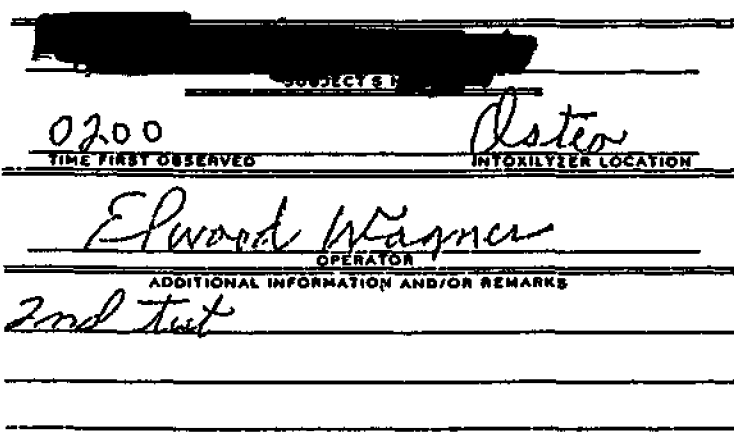 SUBJECT'S N
0200 Osteo
TIME FIRST OBSERVED INTOXILYZER LOCATION
Elwood Wagner
OPERATOR
ADDITIONAL INFORMATION AND/OR REMARKS
2nd test